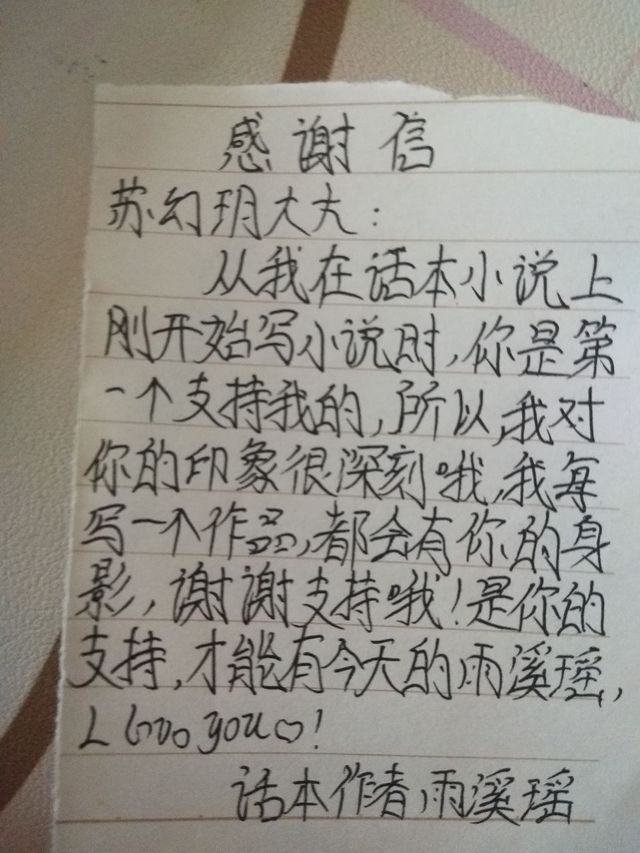 感谢信
苏幻玥大大：
从我在话本小说上
刚开始写小说时，你是第
一个支持我的，所以，我对
你的印象很深刻哦，我每
写一个作品，都会有你的身
影，谢谢支持哦！是你的
支持，才能有今天的雨溪瑶，
I love you♡！
话本作者，雨溪瑶